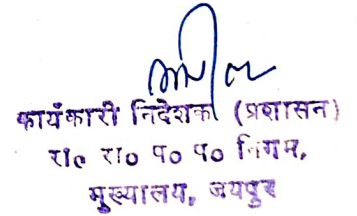 कार्यकारी निदेशक (प्रशासन)
रा० रा० प० प० निगम,
मुख्यालय, जयपुर